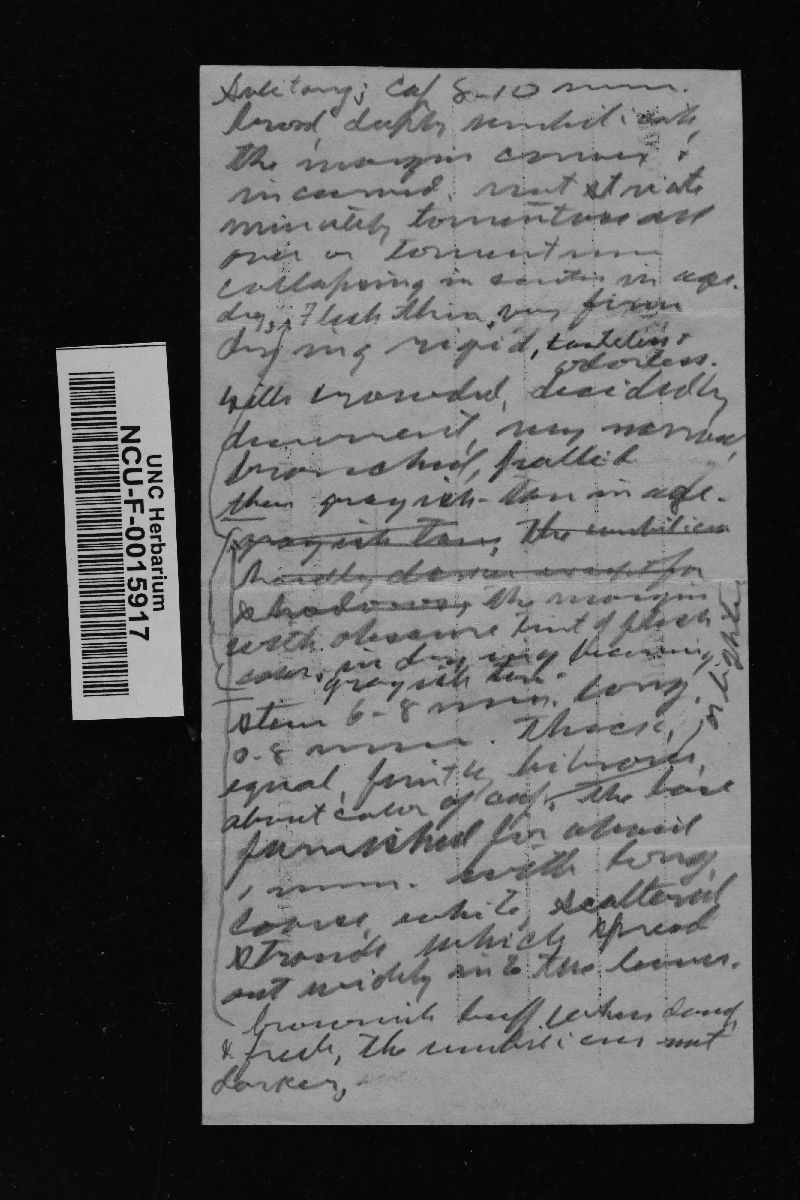 Solitary; Cap 8-10 mm.
broad, deeply umbilicate,
the margin convex &
incurved, not striate
minutely tomentose all
over or tomentum
collapsing in center in age.
dry, Flesh thin, very firm
drying rigid, tasteless &
odorless.
Gills crowded, decidedly
decurrent, very narrow,
branched, pallid
then grayish-tan in age.
grayish tan, the umbilicus
hardly darker except for
shadows, the margin
with obscure tint of flesh
color, in drying becoming
grayish tan.
or lighter
Stem 6-8 mm. long,
0.8 mm. thick,
equal, faintly fibrous,
about color of cap, the base
furnished for about
1 mm. with long,
coarse, white, scattered
strands which spread
out widely into the leaves.
brownish buff when damp
& fresh, the umbilicus not
darker,
UNC Herbarium
NCU-F-0015917